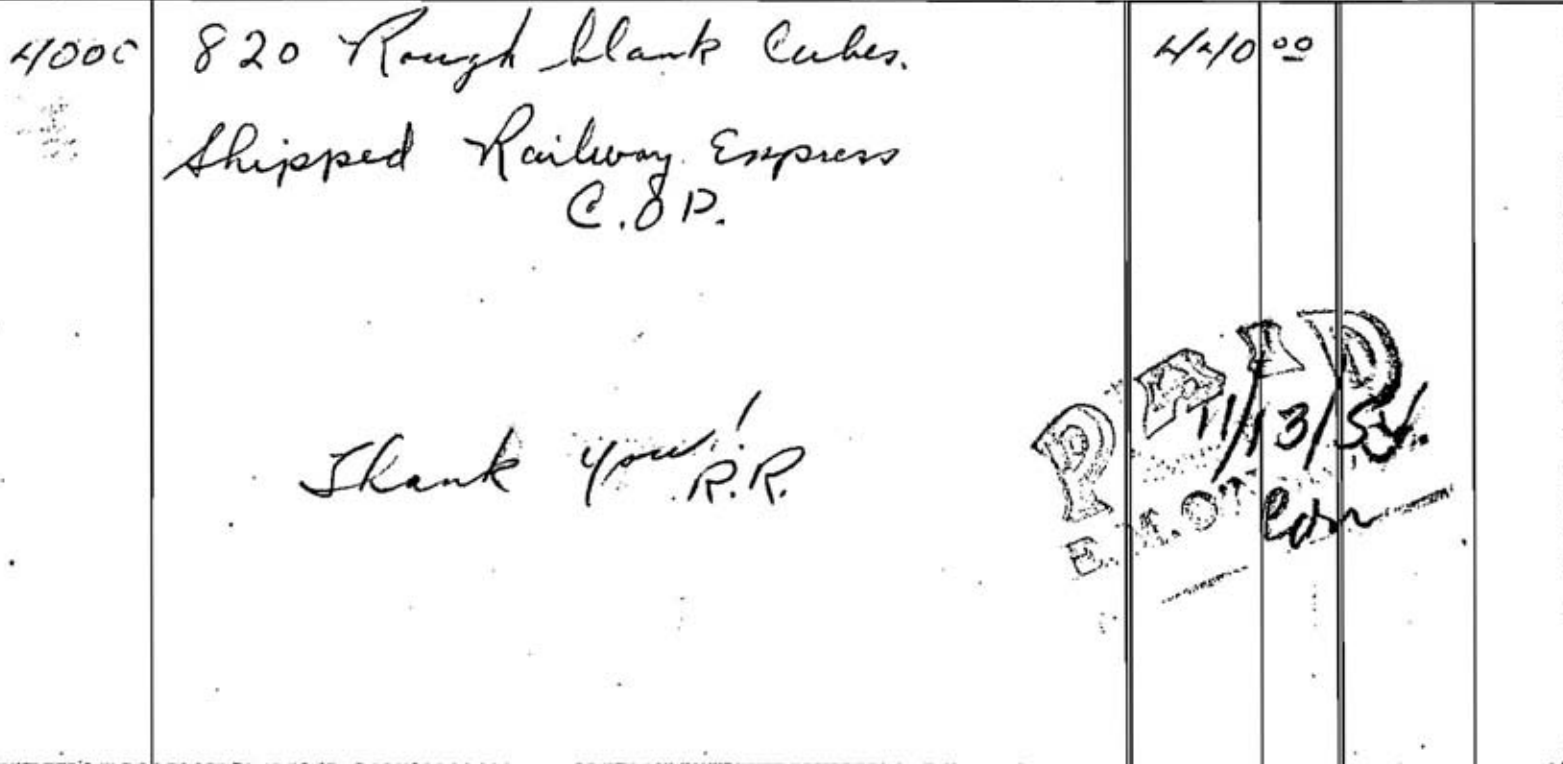 4000 820 Rough blank Cubes. 440 00
Shipped Railway Express
C.O.D.
Thank you!
R.R.
PAID
E.M.O'